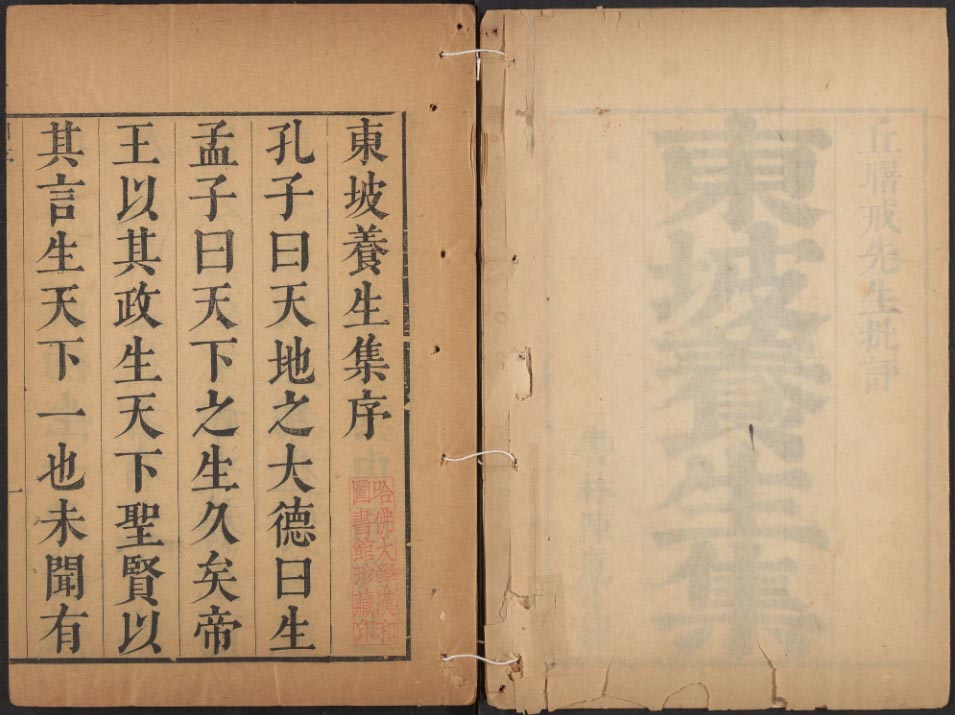 丘曙戒先生批評
東坡養生集
林陳
東坡養生集序
哈佛大學漢和
圖書館珍藏印
孔子曰天地之大德曰生
孟子曰天下之生久矣帝
王以其政生天下聖賢以
其言生天下一也未聞有